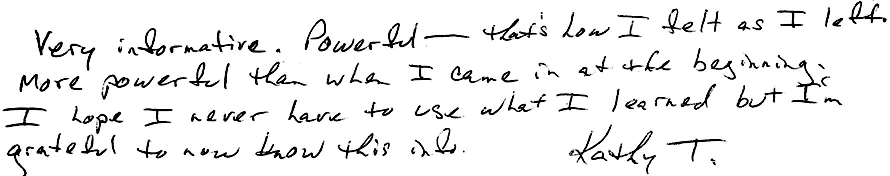 Very informative. Powerful — that's how I felt as I left.
More powerful than when I came in at the beginning.
I hope I never have to use what I learned but I'm
grateful to now know this info. Kathy T.